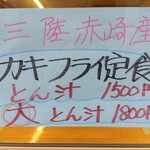 三陸赤崎産
カキフライ定食
とん汁 1500円
大 とん汁 1800円